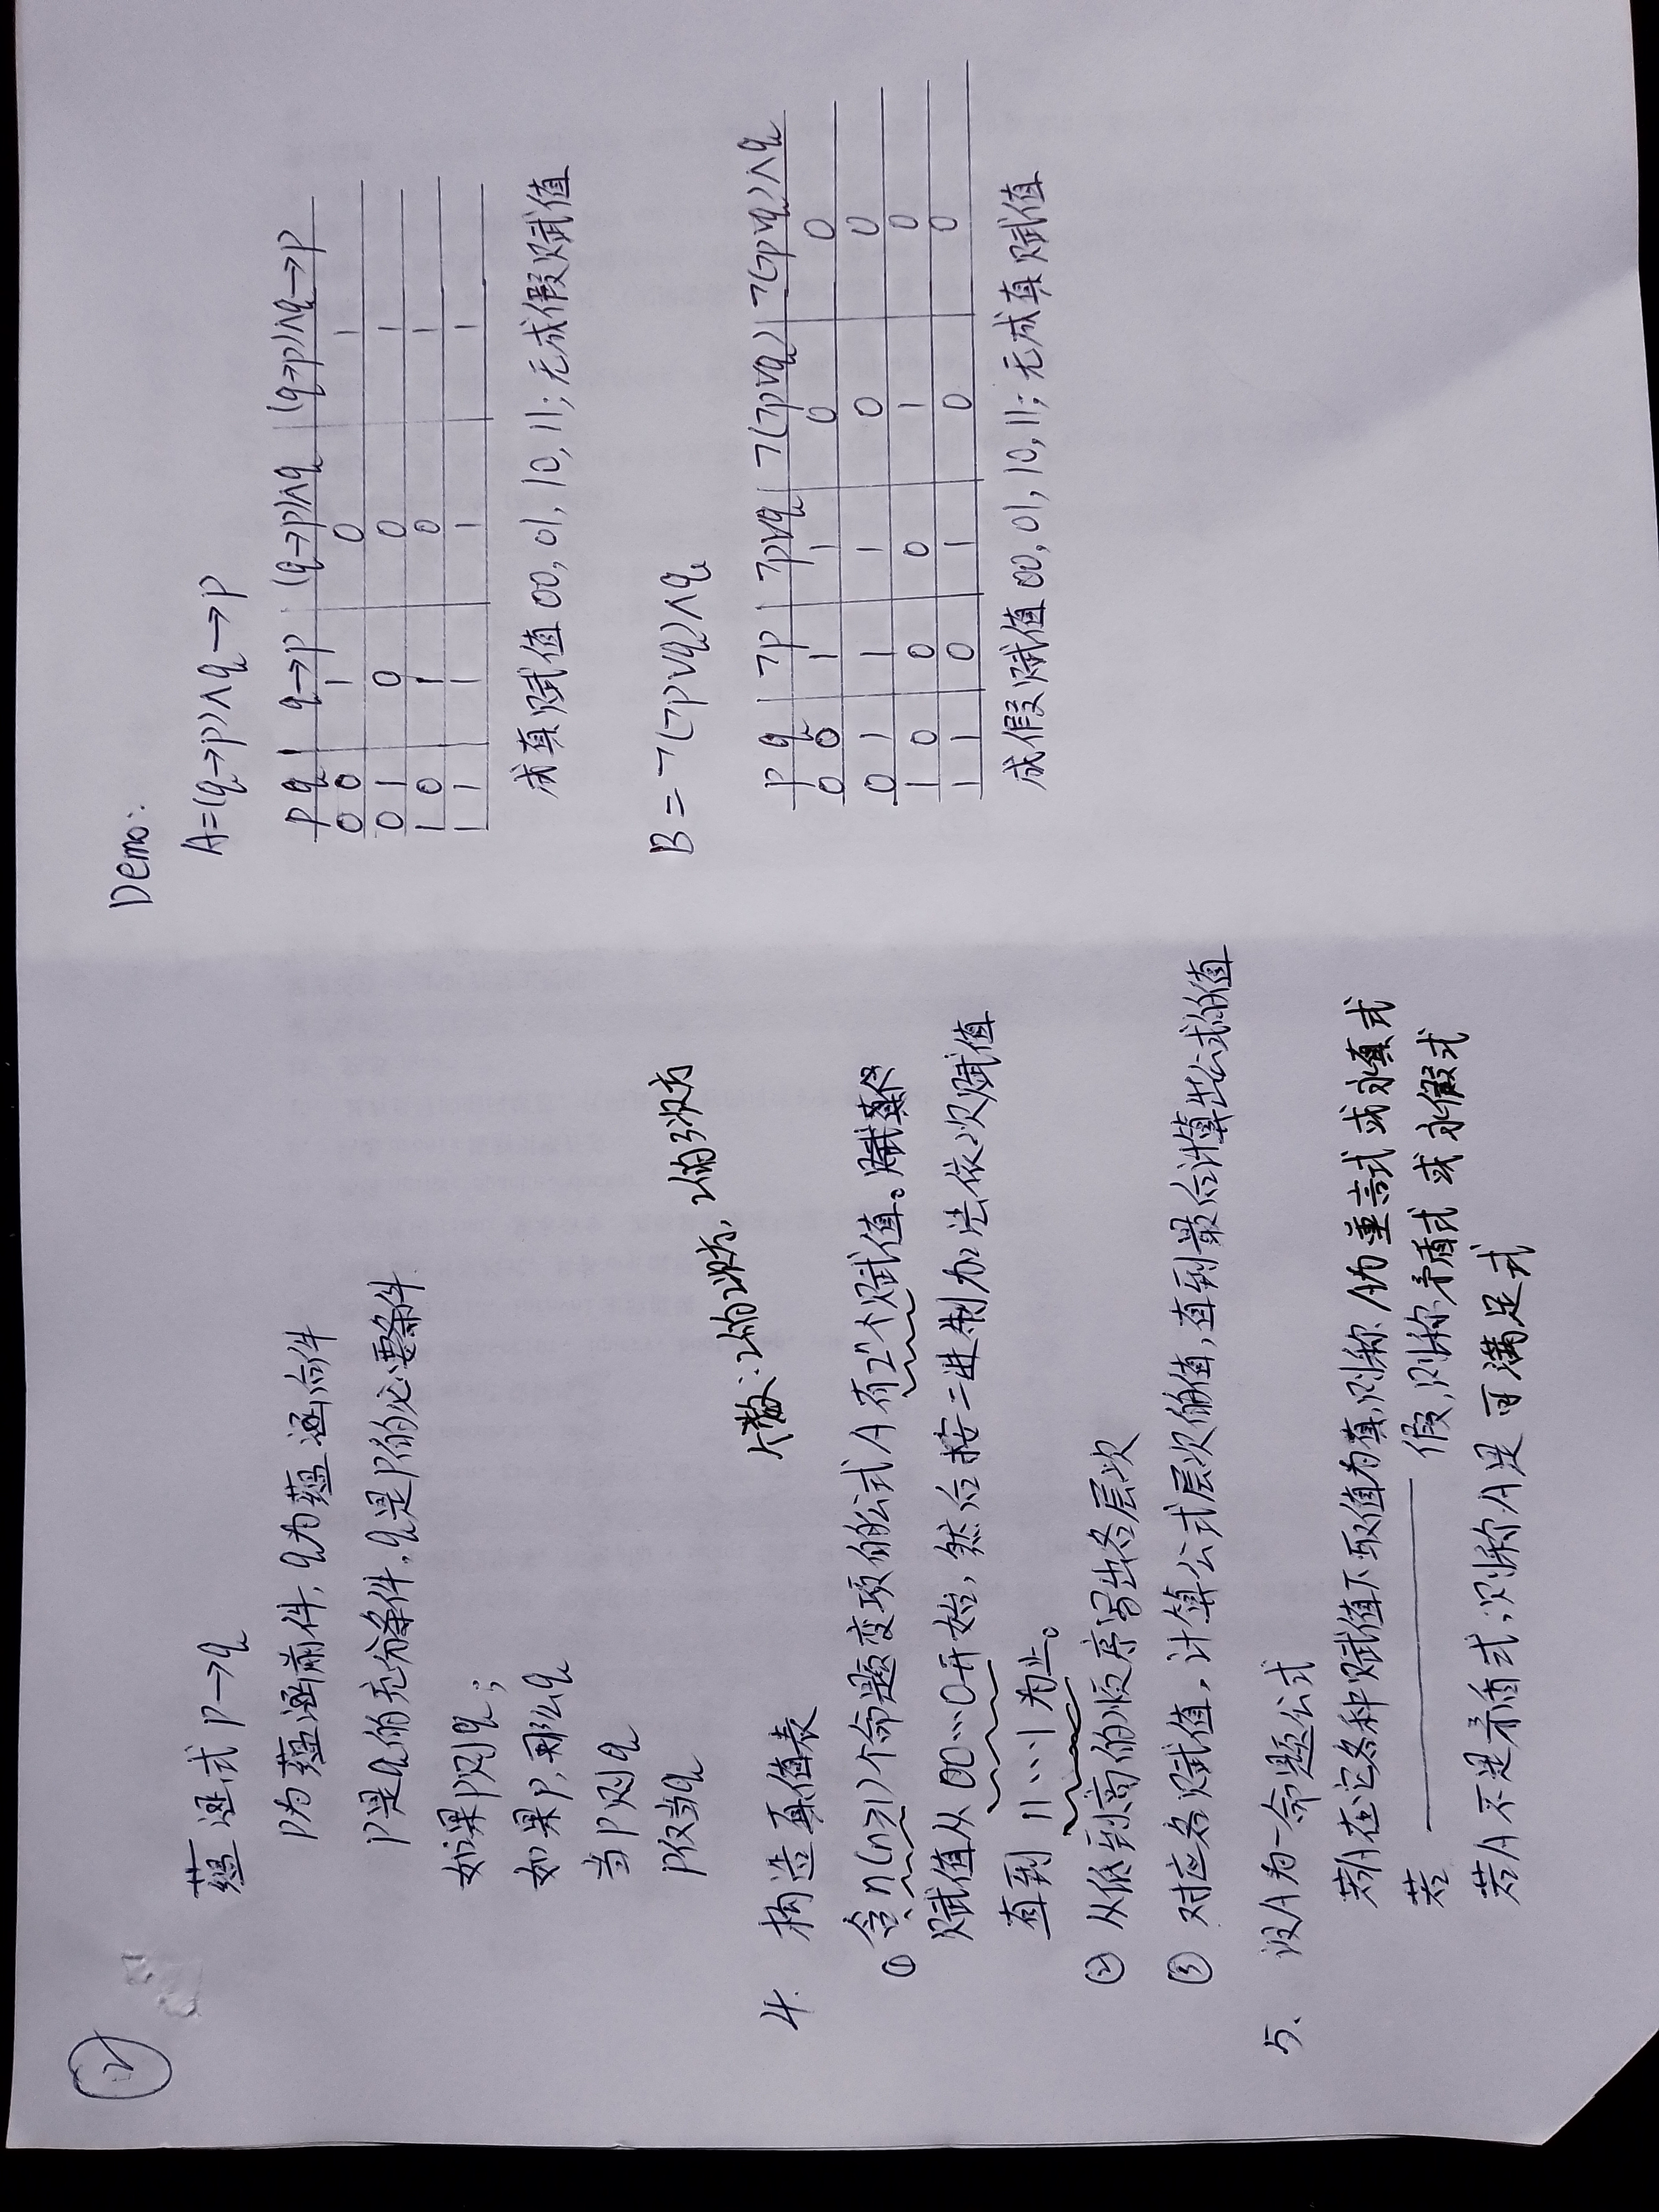 ②
蕴涵式 p→q
p为蕴涵前件, q为蕴涵后件
p是q的充分条件, q是p的必要条件
如果p则q;
如果p, 那么q
当p则q
p仅当q
个数:2的2次方, 2的3次方
4. 构造真值表
① 含n(n≥1)个命题变项的公式A有2ⁿ个赋值。
赋值从 00…0开始, 然后按二进制加法依次赋值
直到 11…1 为止。
② 从低到高的顺序写出各层次
③ 对应各赋值, 计算公式层次的值, 直到最后计算出公式的值
5、 设A为一命题公式
若A在它各种赋值下取值为真, 则称 A为重言式 或永真式
若 ———— 假, 则称矛盾式 或 永假式
若A不是矛盾式, 则称A是 可满足式
Demo:
A=(q→p)∧q→p
p q q→p (q→p)∧q (q→p)∧q→p
0 0 1 0 1
0 1 0 0 1
1 0 1 0 1
1 1 1 1 1
成真赋值 00, 01, 10, 11; 无成假赋值
B = ¬(¬p∨q)∧q
p q ¬p ¬p∨q ¬(¬p∨q) ¬(¬p∨q)∧q
0 0 1 1 0 0
0 1 1 1 0 0
1 0 0 0 1 0
1 1 0 1 0 0
成假赋值 00, 01, 10, 11; 无成真赋值